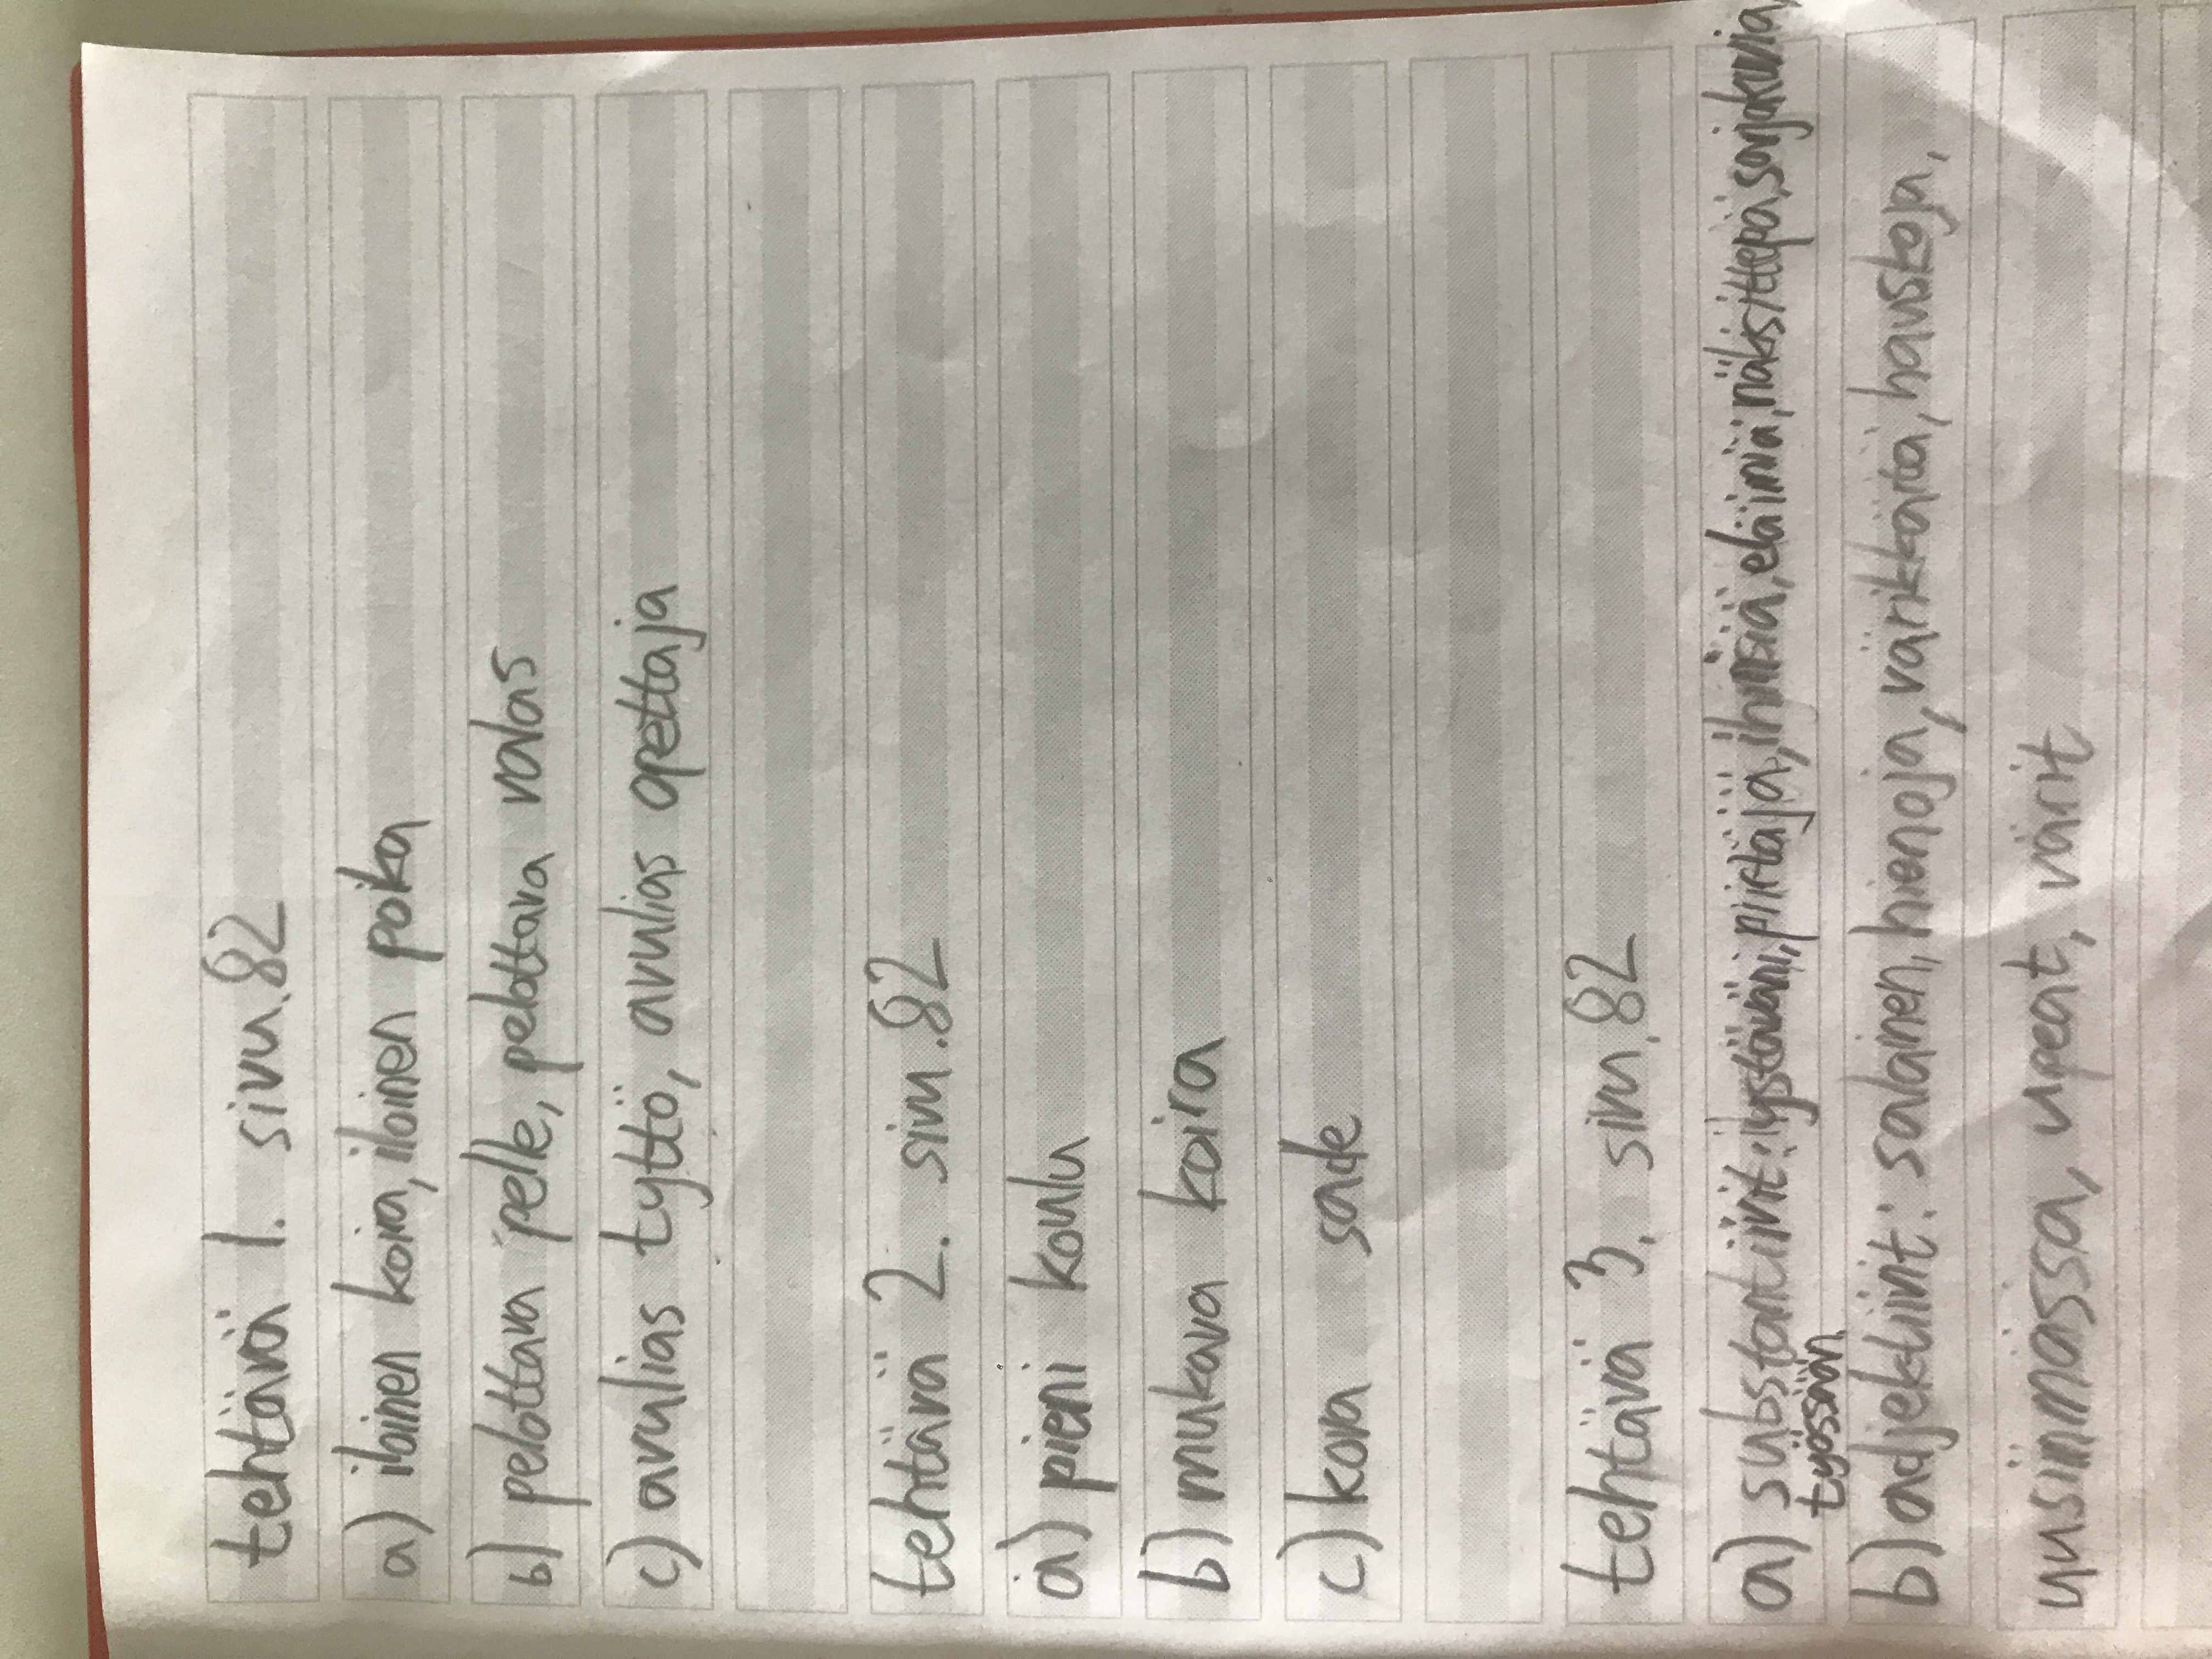 tehtävä 1. sivu.82
a) iloinen koira, iloinen poika
b) pelottava pelle, pelottava valas
c) avulias tyttö, avulias opettaja
tehtävä 2. sivu.82
a) pieni koulu
b) mukava koira
c) kova sade
tehtävä 3. sivu.82
a) substantiivit: ystäväni, piirtäjä, ihmisiä, eläimiä, sarjakuvia,
työssään
b) adjektiivit: salainen, hienoja, värikkäitä, hauskoja,
uusimmassa, upeat, värit